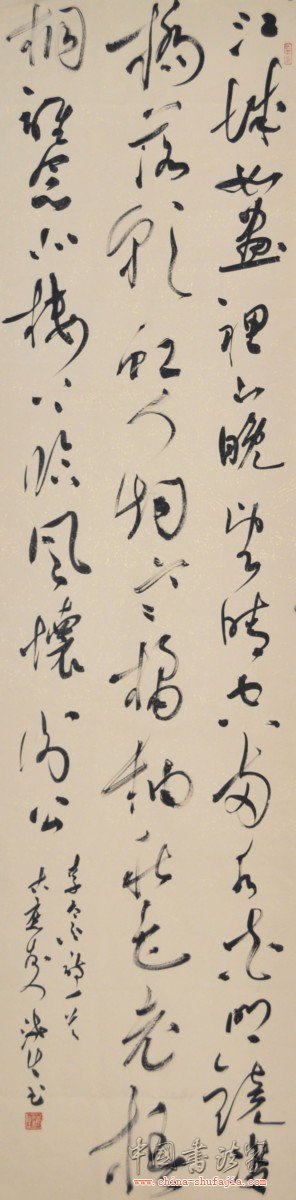 江城如畫裡山晚望晴空兩水夾明鏡雙
橋落彩虹人烟寒橘柚秋色老梧
桐誰念北樓上臨風懷謝公
李白詩一首
人 书
中国书法家
www.china-shufajia.com